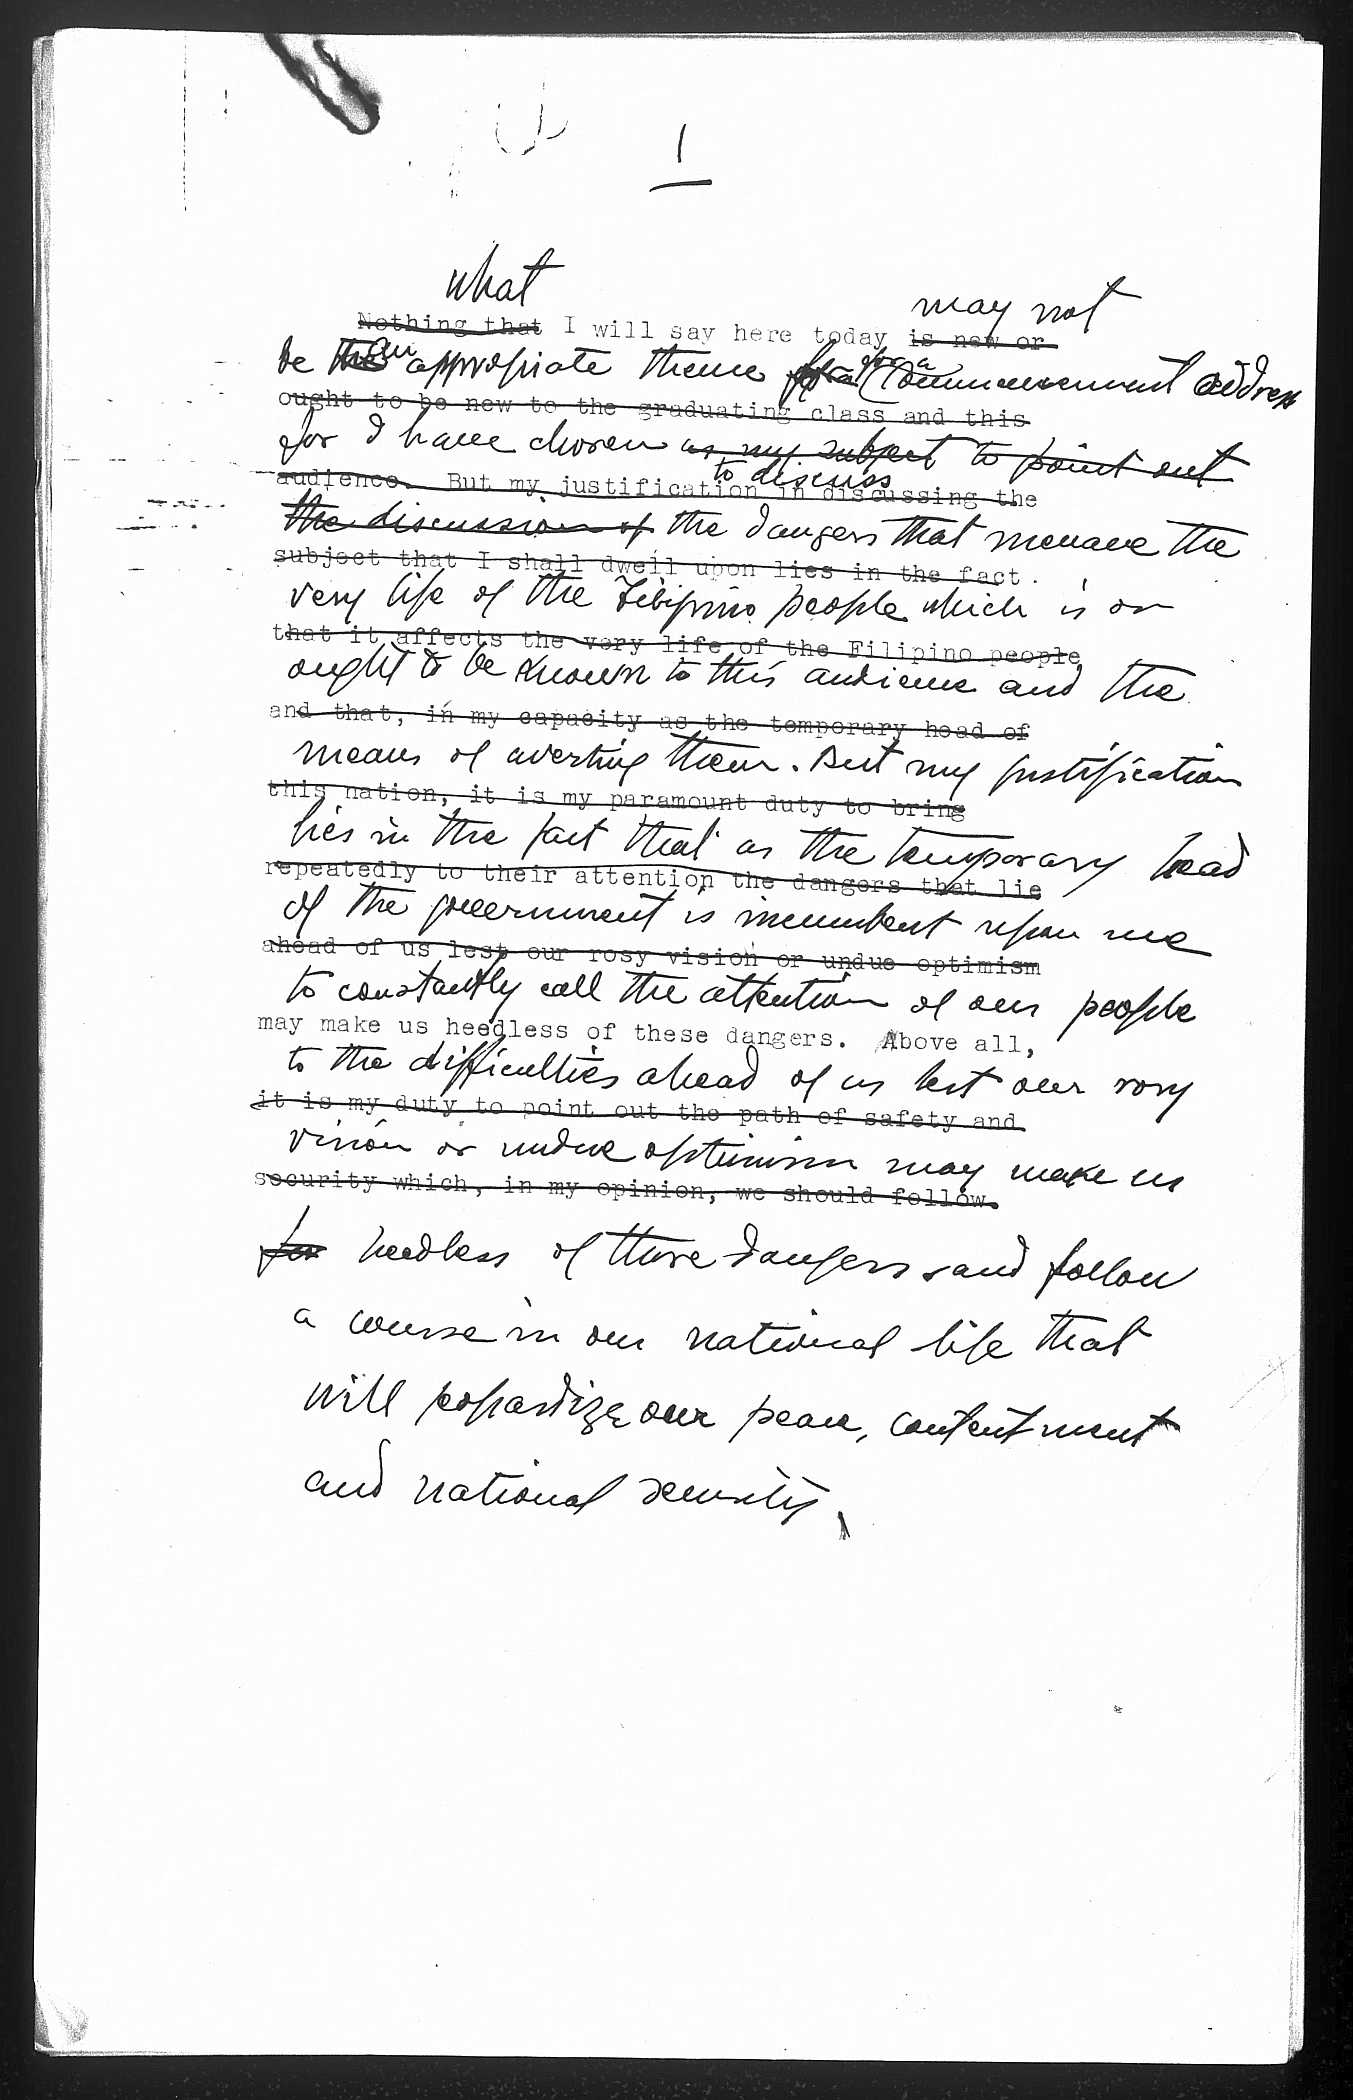 1
what may not
Nothing that I will say here today is new or
be the an appropriate theme for a for a Commencement address
ought to be new to the graduating class and this
for I have chosen as my subject to point out
to discuss
audience. But my justification in discussing the
the discussion of the dangers that menace the
subject that I shall dwell upon lies in the fact
very life of the Filipino people which is or
that it affects the very life of the Filipino people
ought to be known to this audience and the
and that, in my capacity as the temporary head of
means of averting them. But my justification
this nation, it is my paramount duty to bring
lies in the fact that as the temporary head
repeatedly to their attention the dangers that lie
of the government is incumbent upon me
ahead of us lest our rosy vision or undue optimism
to constantly call the attention of our people
may make us heedless of these dangers. Above all,
to the difficulties ahead of us lest our rosy
it is my duty to point out the path of safety and
vision or undue optimism may make us
security which, in my opinion, we should follow.
for heedless of those dangers and follow
a course in our national life that
will jeopardize our peace, contentment
and national security.